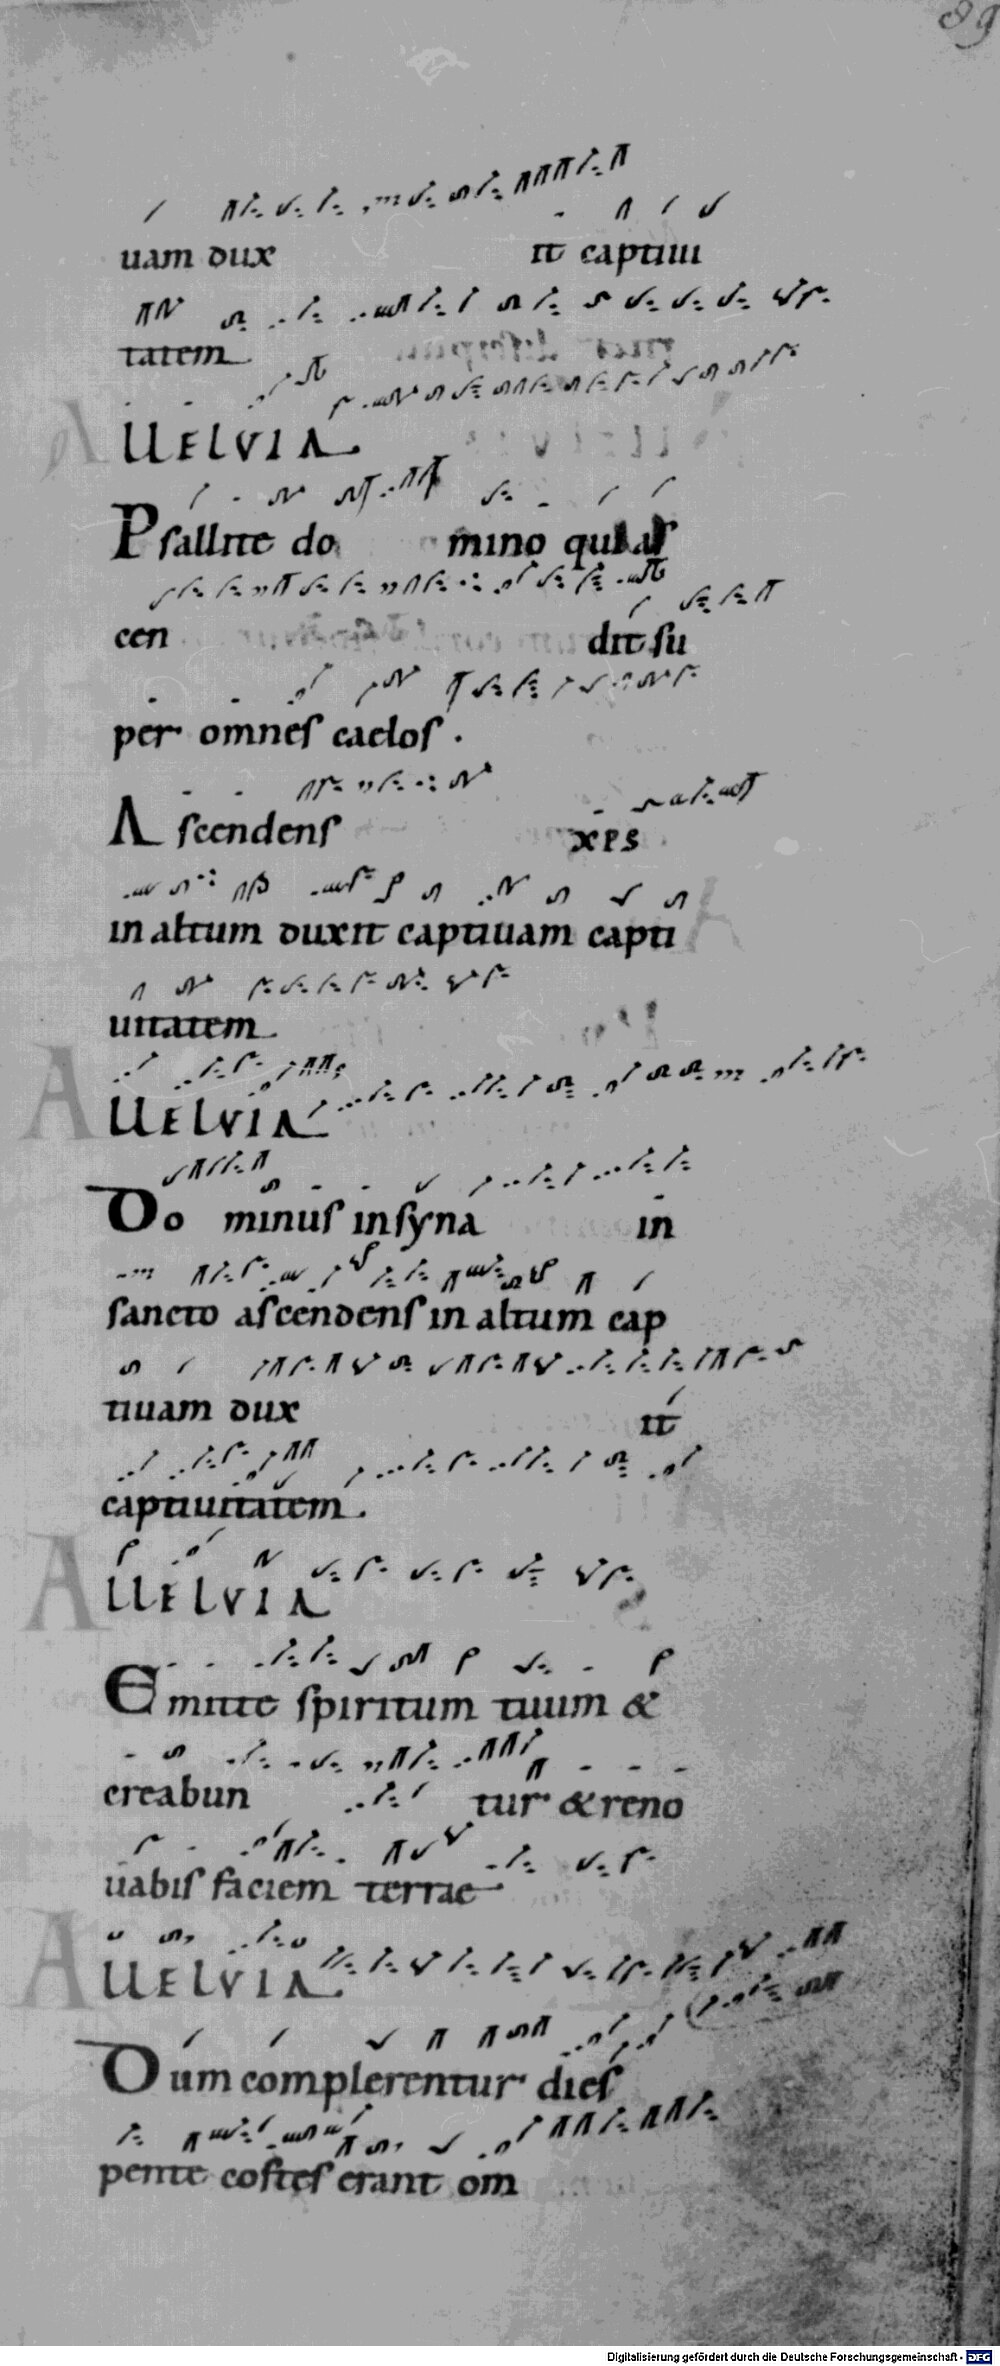 89
uam dux it captiui
tatem
ALLELVIA
Psallite do mino qui as
cen dit su
per omnes caelos .
Ascendens XPS
in altum duxit captiuam capti
uitatem
ALLELVIA
Do minus in syna in
sancto ascendens in altum cap
tiuam dux it
captiuitatem .
ALLELVIA
Emitte spiritum tuum &
creabun tur & reno
uabis faciem terrae
ALLELVIA
Dum complerentur dies
pente costes erant om
Digitalisierung gefördert durch die Deutsche Forschungsgemeinschaft - DFG